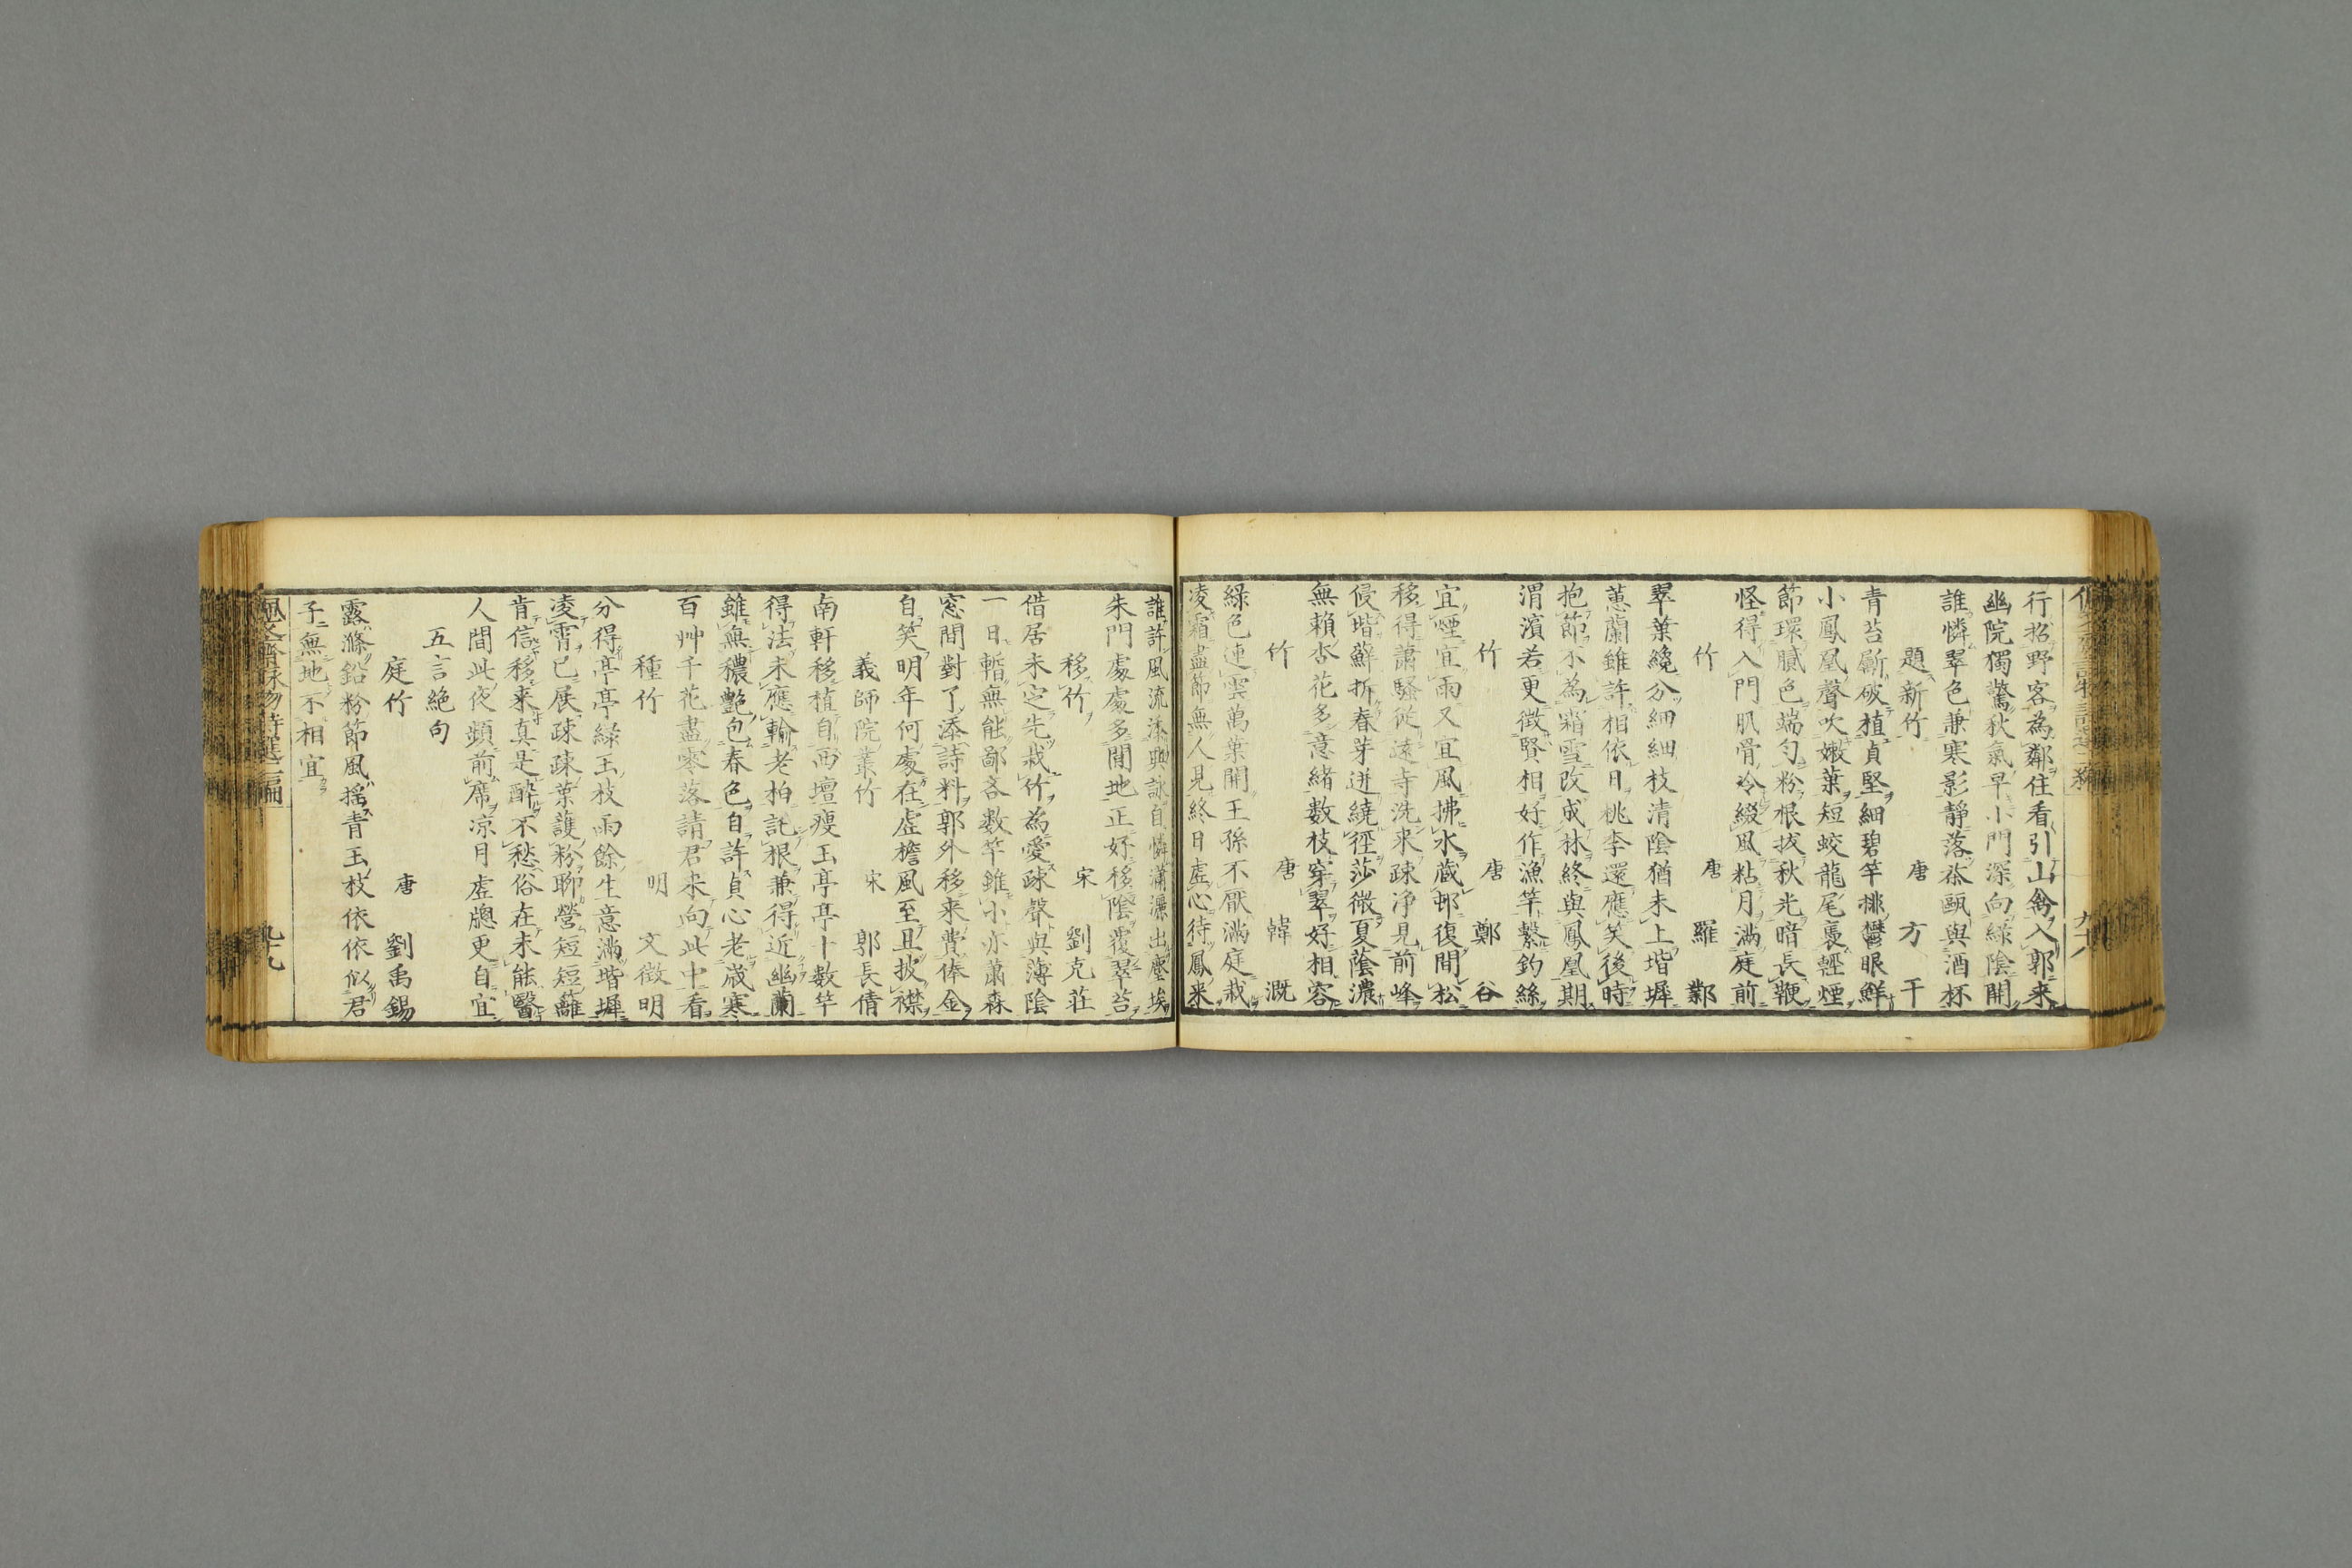 行招野客為鄰住看引山禽入郭来
幽院獨驚秋氣早小門深向綠陰開
誰憐翠色兼寒影靜落茶甌與酒杯
題新竹 唐 方干
青苔斸破植貞堅細碧竿排鬱眼鮮
小鳳凰聲吹嫩葉短蛟龍尾褭輕煙
節環膩色端匀粉根拔秋光暗長鞭
怪得入門肌骨冷綴風粘月滿庭前
竹 唐 羅鄴
翠葉纔分細細枝清陰猶未上堦墀
蕙蘭雖許相依日桃李還應笑後時
抱節不為霜雪改成林終與鳳凰期
渭濱若更徵賢相好作漁竿繫釣絲
竹 唐 鄭谷
宜煙宜雨又宜風拂水藏邨復間松
移得蕭騷從遠寺洗来疎淨見前峰
侵堦蘚拆春芽迸繞徑莎微夏蔭濃
無賴杏花多意緒数枝穿翠好相容
竹 唐 韓溉
綠色連雲萬葉開王孫不厭滿庭栽
凌霜盡節無人見終日虛心待鳳来
誰許風流添興詠自憐瀟灑出塵埃
朱門處處多閒地正好移陰覆翠苔
移竹 宋 劉克莊
借居未定先栽竹為愛疎聲與薄陰
一日暫無能鄙吝数竿雖小亦蕭森
窓間對了添詩料郭外移来費俸金
自笑明年何處在虛檐風至且披襟
義師院叢竹 宋 郭長倩
南軒移植自西壇瘦玉亭亭十数竿
得法未應輸老柏託根兼得近幽蘭
雖無穠艶包春色自許貞心老歲寒
百艸千花盡零落請君来向此中看
種竹 明 文徴明
分得亭亭綠玉枝雨餘生意滿堦墀
凌霄已展疎疎葉護粉聊營短短籬
肯信移来真是醉不愁俗在未能醫
人間此夜頻前席凉月虛牕更自宜
五言絶句
庭竹 唐 劉禹錫
露滌鉛粉節風揺青玉枝依依似君
子無地不相宜
九十九